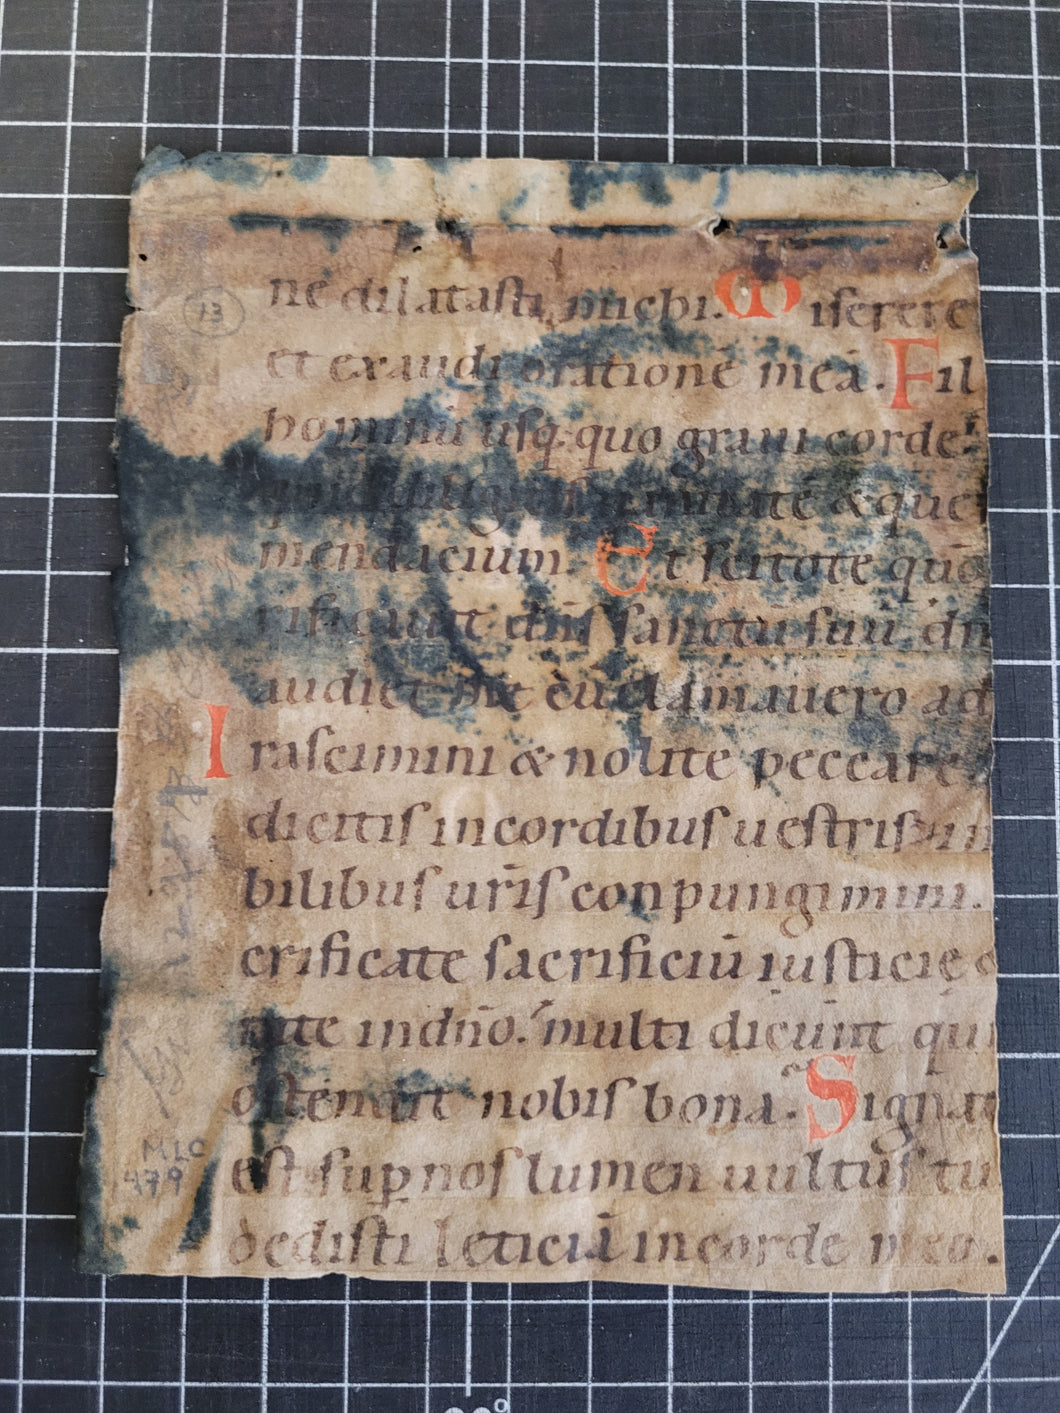 ne dilatasti michi. Miserere
13
et exaudi orationē meā. Fil
hominū usq quo graui corde
quid diligitis uanitatē & que
mendacium. Et scitote quō
rificauit dn̄s sanctū suū, dn
audiet me cū clamauero ad
Irascimini & nolite peccare
dicitis incordibus uestris in
bilibus ur̄is conpungimini.
crificate sacrificiū iusticie
rate indn̄o. multi dicunt qui
ostendit nobis bona. Signat
est sup nos lumen uultus tu
MLC
479
dedisti leticiā incorde meo.